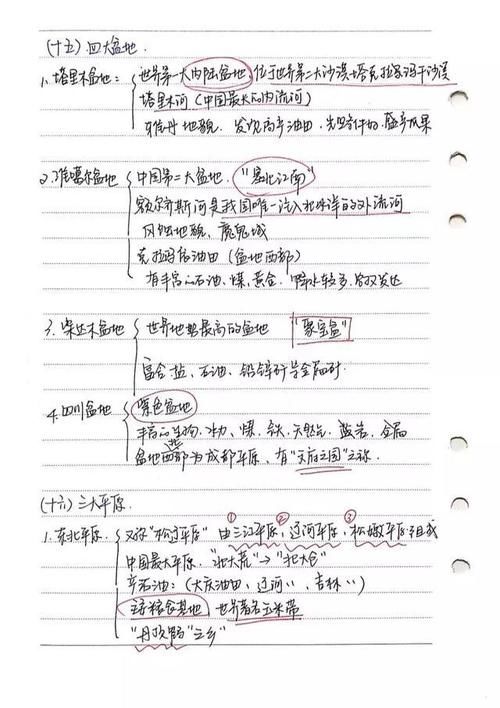 (十五) 四大盆地.
1. 塔里木盆地: 世界第一大内陆盆地, 位于世界第二大沙漠塔克拉玛干沙漠
塔里木河 (中国最大的内流河)
雅丹地貌、发现高产油田、光照条件好, 盛产瓜果
2. 准噶尔盆地 中国第二大盆地. "塞北江南"
额尔齐斯河是我国唯一注入北冰洋的外流河
风蚀地貌、魔鬼城
克拉玛依油田 (盆地西部)
有丰富的石油、煤、黄金. 降水较多、牧业发达
3. 柴达木盆地 世界地势最高的盆地 "聚宝盆"
富含盐、石油、铅锌矿等金属矿.
4. 四川盆地 紫色盆地
丰富的生物、水力、煤、铁、天然气、盐岩、金属
盆地西部为成都平原、有"天府之国"之称.
(十六) 三大平原
1. 东北平原. 又称"松辽平原" 由三江平原, 辽河平原, 松嫩平原组成
① ② ③
中国最大平原. "北大荒"→"北大仓"
产石油: (大庆油田, 辽河〃, 吉林〃)
粮食基地 世界著名玉米带
"丹顶鹤"之乡"